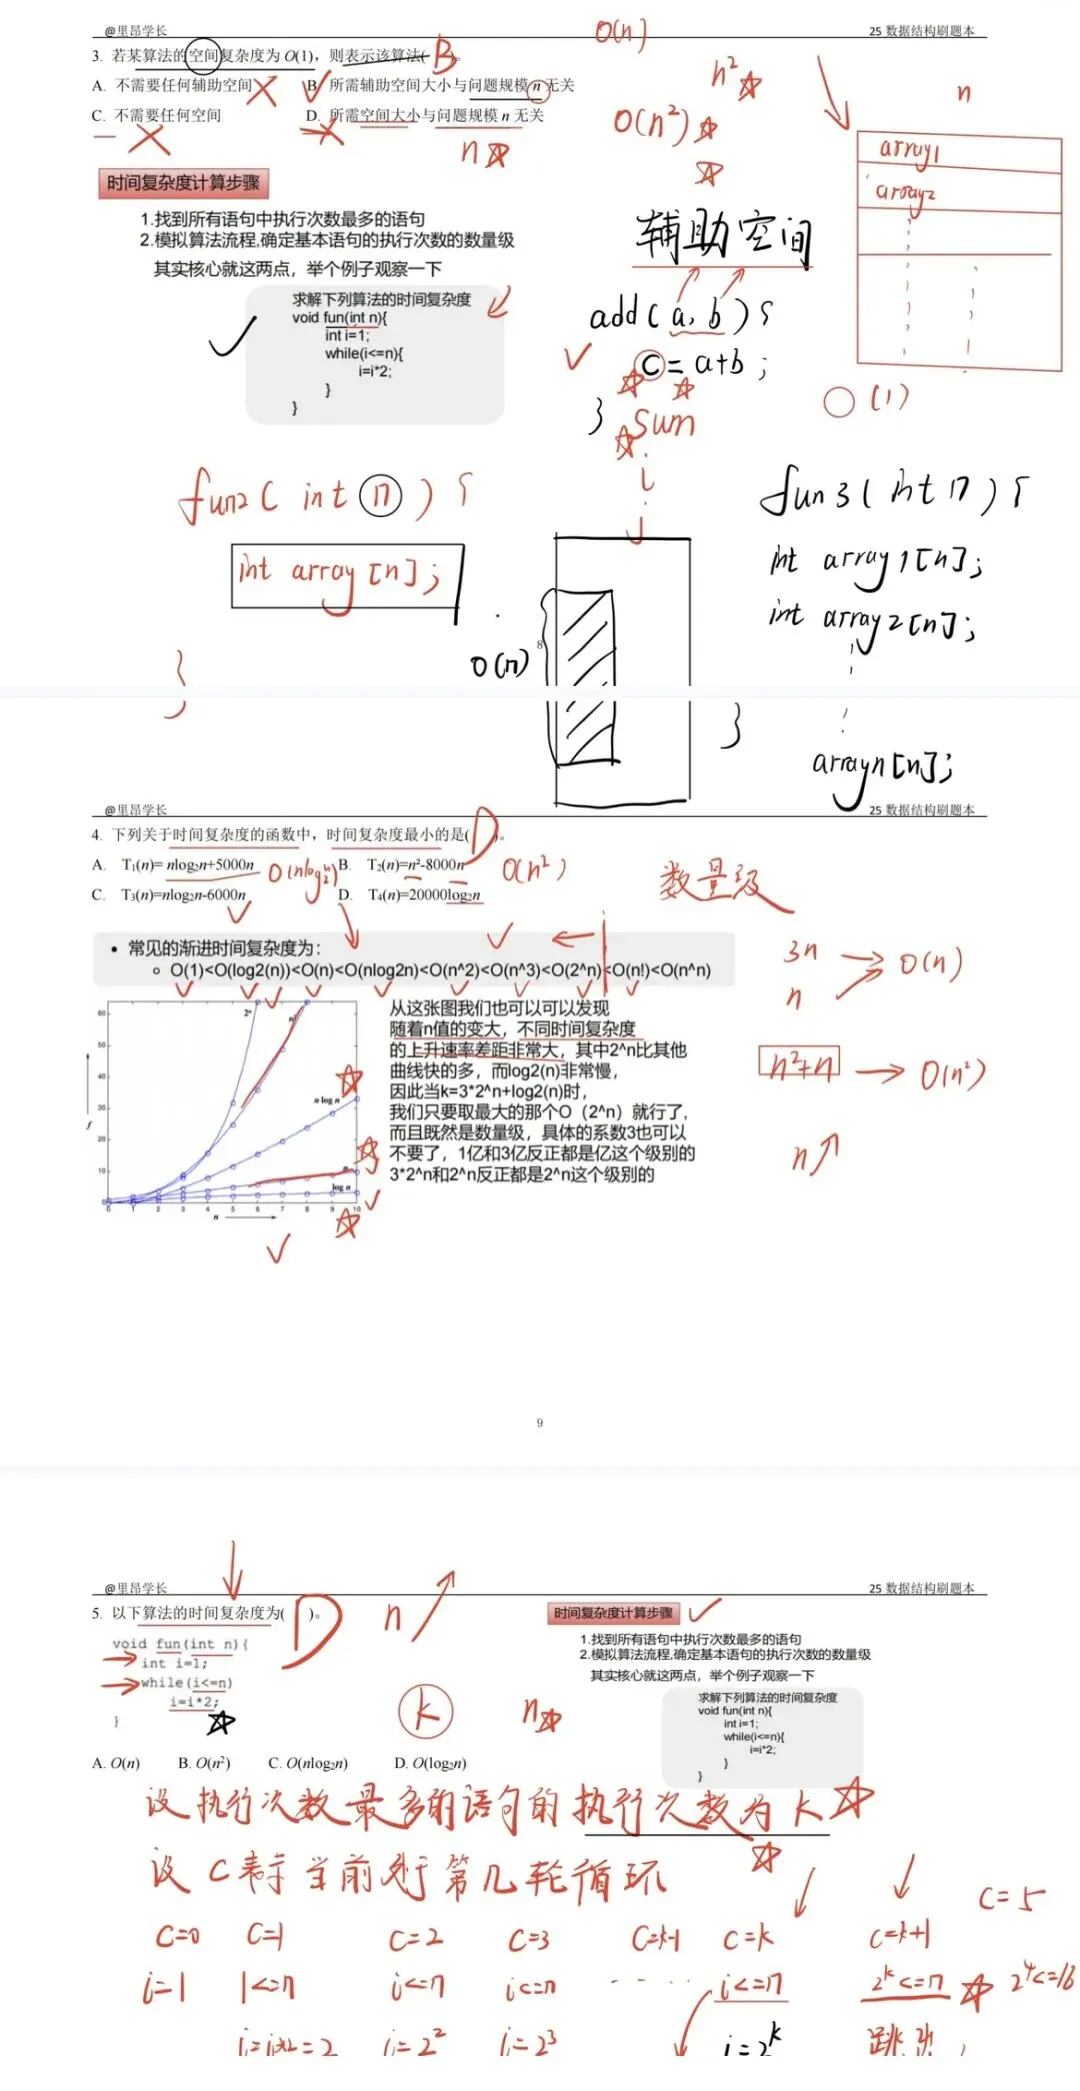 @里昂学长
25 数据结构刷题本
O(n)
3. 若某算法的空间复杂度为 O(1)，则表示该算法( B )。
A. 不需要任何辅助空间 B. 所需辅助空间大小与问题规模 n 无关
C. 不需要任何空间 D. 所需空间大小与问题规模 n 无关
n
n²
O(n²)
n
array1
array2
O(1)
时间复杂度计算步骤
1.找到所有语句中执行次数最多的语句
2.模拟算法流程,确定基本语句的执行次数的数量级
其实核心就这两点，举个例子观察一下
求解下列算法的时间复杂度
void fun(int n){
int i=1;
while(i<=n){
i=i*2;
}
}
辅助空间
add(a, b){
c=a+b;
}
sum
i
j
fun2(int n){
int array[n];
}
O(n)
8
fun3(int n){
int array1[n];
int array2[n];
arrayn[n];
}
@里昂学长
25 数据结构刷题本
4. 下列关于时间复杂度的函数中，时间复杂度最小的是( D )。
A. T₁(n)= nlog₂n+5000n O(nlog₂n) B. T₂(n)=n²-8000n O(n²)
C. T₃(n)=nlog₂n-6000n D. T₄(n)=20000log₂n
数量级
3n
n
O(n)
n²+n → O(n²)
n↗
• 常见的渐进时间复杂度为：
O(1)<O(log2(n))<O(n)<O(nlog2n)<O(n^2)<O(n^3)<O(2^n)<O(n!)<O(n^n)
60
50
40
30
20
10
0
f
2ⁿ
n²
n log n
n
log n
0 1 2 3 4 5 6 7 8 9 10
n
从这张图我们也可以可以发现
随着n值的变大，不同时间复杂度
的上升速率差距非常大，其中2^n比其他
曲线快的多，而log2(n)非常慢，
因此当k=3*2^n+log2(n)时，
我们只要取最大的那个O（2^n）就行了，
而且既然是数量级，具体的系数3也可以
不要了，1亿和3亿反正都是亿这个级别的
3*2^n和2^n反正都是2^n这个级别的
9
@里昂学长
25 数据结构刷题本
5. 以下算法的时间复杂度为( D )。
void fun(int n){
int i=1;
while(i<=n)
i=i*2;
}
n↗
k
n
时间复杂度计算步骤
1.找到所有语句中执行次数最多的语句
2.模拟算法流程,确定基本语句的执行次数的数量级
其实核心就这两点，举个例子观察一下
求解下列算法的时间复杂度
void fun(int n){
int i=1;
while(i<=n){
i=i*2;
}
}
A. O(n) B. O(n²) C. O(nlog₂n) D. O(log₂n)
设执行次数最多的语句的执行次数为k
设C表示当前执行第几轮循环
C=0 C=1 C=2 C=3 C=k-1 C=k C=k+1 C=5
i=1 1<=n i<=n i<=n i<=n 2ᵏ<=n 2⁴<=16
i=i*2=2 i=2² i=2³ i=2ᵏ 跳出